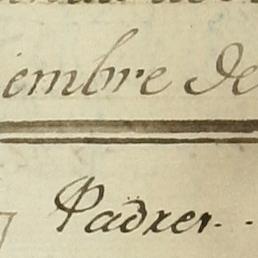 iembre de
Padres. .